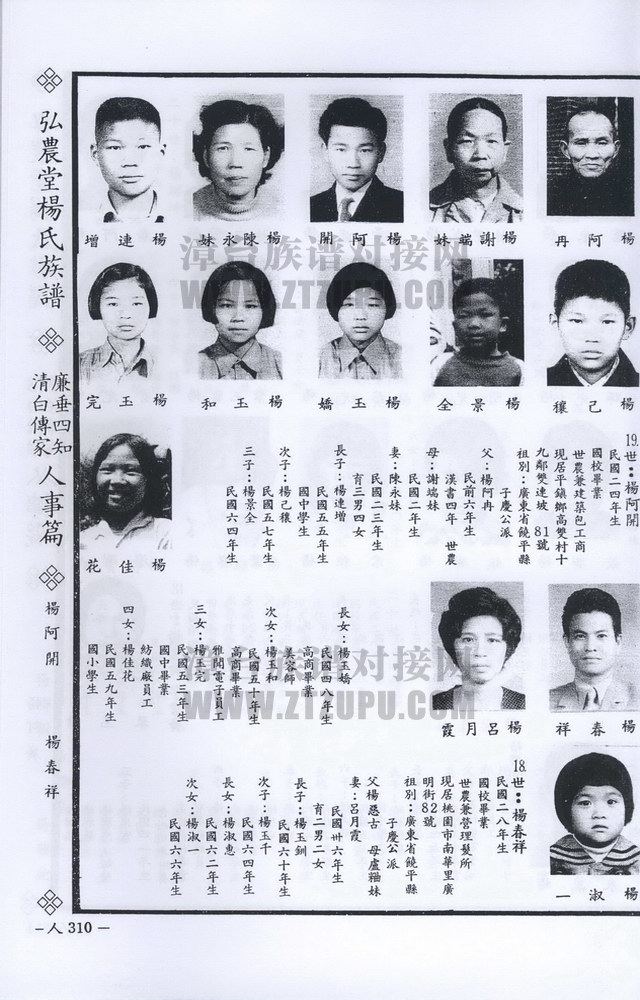 弘農堂楊氏族譜
廉垂四知
清白傳家
人事篇
楊阿開
楊春祥
楊阿冉
楊謝端妹
楊阿開
楊陳永妹
楊連增
楊己穰
楊景全
楊玉嬌
楊玉和
楊玉完
楊佳花
19.世：楊阿開
民國二四年生
國校畢業
世農兼建築包工商
現居平鎮鄉高雙村十
九鄰雙連坡81號
祖別：廣東省饒平縣
子慶公派
父：楊阿冉
民前六年生
漢書四年 世農
母：謝端妹
民國二年生
妻：陳永妹
民國二三年生
育三男四女
長子：楊連增
民國五五年生
國中學生
次子：楊己穰
民國五七年生
三子：楊景全
民國六四年生
長女：楊玉嬌
民國四八年生
高商畢業
美容師
次女：楊玉和
民國五十年生
高商畢業
雅開電子員工
三女：楊玉完
民國五三年生
國中畢業
紡織廠員工
四女：楊佳花
民國五九年生
國小學生
楊春祥
楊呂月霞
楊淑一
18.世：楊春祥
民國二八年生
國校畢業
世農兼管理髮所
現居桃園市南華里廣
明街82號
祖別：廣東省饒平縣
子慶公派
父楊惡古 母盧貓妹
妻：呂月霞
民國卅六年生
育二男二女
長子：楊玉釧
民國六十年生
次子：楊玉千
民國六四年生
長女：楊淑惠
民國六二年生
次女：楊淑一
民國六六年生
—人 310—
漳台族谱对接网
WWW.ZTZUPU.COM
漳台族谱对接网
WWW.ZTZUPU.COM